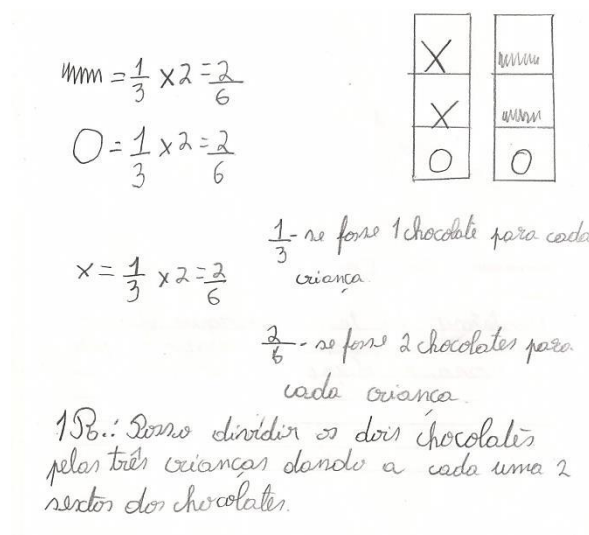 = 1/3 x 2 = 2/6
O = 1/3 x 2 = 2/6
x = 1/3 x 2 = 2/6
X
X
O
O
1/3 - se fosse 1 chocolate para cada
criança
2/6 - se fosse 2 chocolates para
cada criança.
1R.: Posso dividir os dois chocolates
pelas três crianças dando a cada uma 2
sextos dos chocolates.